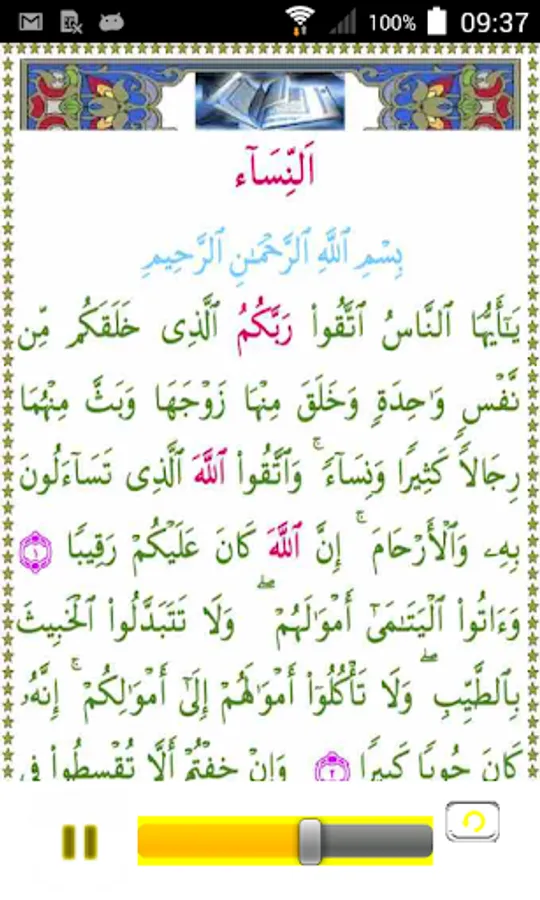 100% 09:37
اَلنِّسَآء
بِسْمِ ٱللَّهِ ٱلرَّحْمَٰنِ ٱلرَّحِيمِ
يَٰٓأَيُّهَا ٱلنَّاسُ ٱتَّقُوا۟ رَبَّكُمُ ٱلَّذِى خَلَقَكُم مِّن
نَّفْسٍ وَٰحِدَةٍ وَخَلَقَ مِنْهَا زَوْجَهَا وَبَثَّ مِنْهُمَا
رِجَالًا كَثِيرًا وَنِسَآءً ۚ وَٱتَّقُوا۟ ٱللَّهَ ٱلَّذِى تَسَآءَلُونَ
بِهِۦ وَٱلْأَرْحَامَ ۚ إِنَّ ٱللَّهَ كَانَ عَلَيْكُمْ رَقِيبًا ١
وَءَاتُوا۟ ٱلْيَتَٰمَىٰٓ أَمْوَٰلَهُمْ ۖ وَلَا تَتَبَدَّلُوا۟ ٱلْخَبِيثَ
بِٱلطَّيِّبِ ۖ وَلَا تَأْكُلُوٓا۟ أَمْوَٰلَهُمْ إِلَىٰٓ أَمْوَٰلِكُمْ ۚ إِنَّهُۥ
كَانَ حُوبًا كَبِيرًا ٢ وَإِنْ خِفْتُمْ أَلَّا تُقْسِطُوا۟ فِى